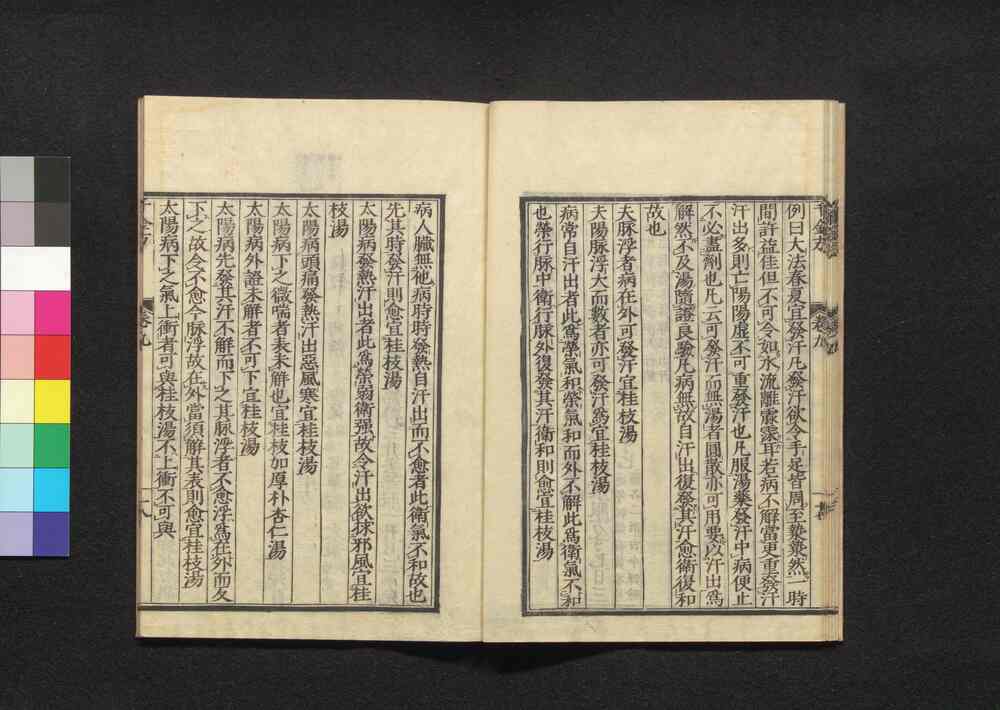 例曰大法春夏宜發汗凡發汗欲令手足皆周至漐漐然一時
間許益佳但不可令如水流離霡霂耳若病不解當更重發汗
汗出多則亡陽陽虛不可重發汗也凡服湯藥發汗中病便止
不必盡劑也凡云可發汗而無湯者圓散亦可用要以汗出爲
解然不及湯隨證良驗凡病無故自汗出復發其汗愈衛復和
故也
夫脉浮者病在外可發汗宜桂枝湯
夫陽脉浮大而數者亦可發汗爲宜桂枝湯
病常自汗出者此爲榮氣和榮氣和而外不解此爲衛氣不和
也榮行脉中衛行脉外復發其汗衛和則愈宜桂枝湯
病人臟無他病時時發熱自汗出而不愈者此衛氣不和故也
先其時發汗則愈宜桂枝湯
太陽病發熱汗出者此爲榮弱衛强故令汗出欲捄邪風宜桂
枝湯
太陽病頭痛發熱汗出惡風寒宜桂枝湯
太陽病下之微喘者表未解也宜桂枝加厚朴杏仁湯
太陽病外證未解者不可下宜桂枝湯
太陽病先發其汗不解而下之其脉浮者不愈浮爲在外而反
下之故令不愈今脉浮故在外當須解其表則愈宜桂枝湯
太陽病下之氣上衝者可與桂枝湯不上衝不可與
卷九